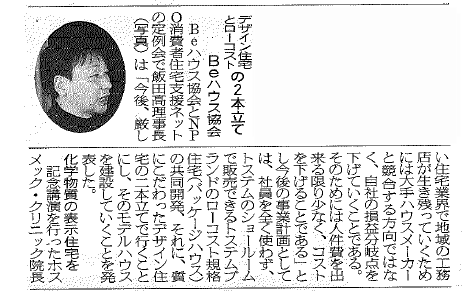 デザイン住宅
とローコスト
の2本立て
Beハウス協会
Beハウス協会とNP
O消費者住宅支援ネット
の定例会で飯田高理事長
（写真）は「今後、厳し
い住宅業界で地域の工務
店が生き残っていくため
には大手ハウスメーカー
と競合する方向ではな
く、自社の損益分岐点を
下げていくことである。
そのためには人件費を出
来る限り少なく、コスト
を下げることである」と
し今後の事業計画として
は、社員を全く使わず、
トステムのショールーム
で販売できるトステムブ
ランドのローコスト規格
住宅（パッケージハウス）
の共同開発、それに、質
にこだわったデザイン住
宅の二本立てで行くこと
にし、そのモデルハウス
を建設していくことを発
表した。
化学物質の表示住宅を
記念講演を行ったホス
メック・クリニック院長